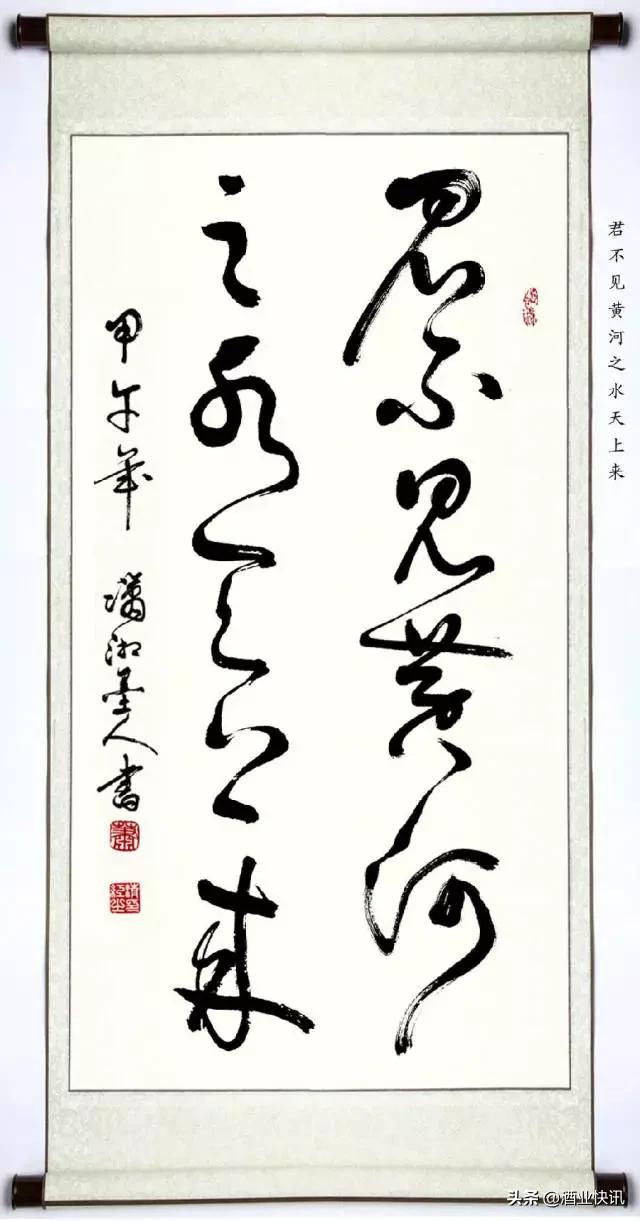 君不见黄河之水天上来
君不见黄河
之水天上来
甲午年 潇湘墨人书
头条 @酒业快讯